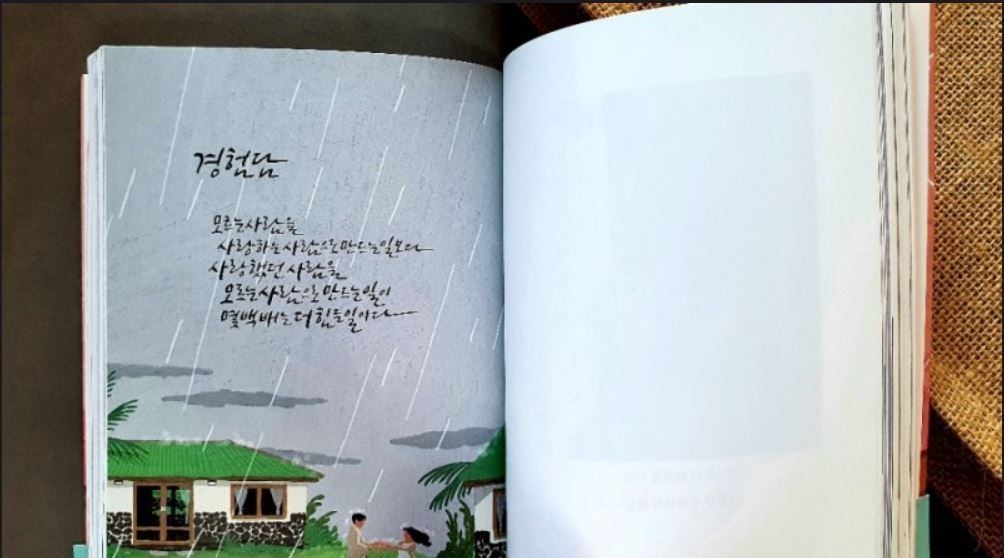 경험담
모르는 사람을
사랑하는 사람으로 만드는 일보다
사랑했던 사람을
모르는 사람으로 만드는 일이
몇백 배는 더 힘든 일이다